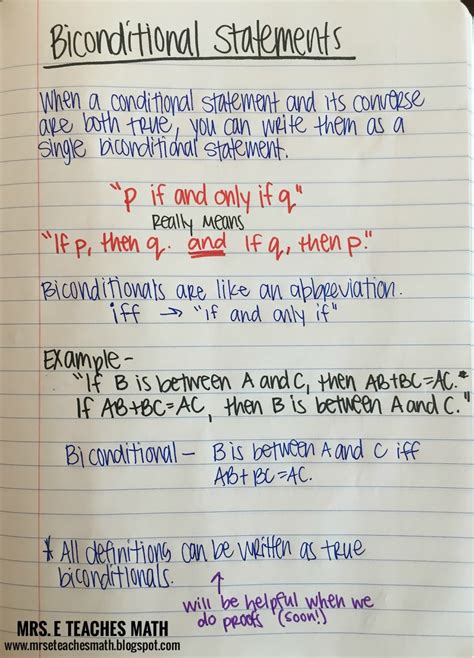 Biconditional Statements
When a conditional statement and its converse
are both true, you can write them as a
single biconditional statement.
"p if and only if q"
Really Means
"If p, then q. and If q, then p."
Biconditionals are like an abbreviation.
iff → "if and only if"
Example-
"If B is between A and C, then AB+BC=AC."
If AB+BC=AC, then B is between A and C."
Biconditional - B is between A and C iff
AB+BC=AC.
* All definitions can be written as true
biconditionals.
↑
will be helpful when we
do proofs (soon!)
MRS. E TEACHES MATH
www.mrseteachesmath.blogspot.com